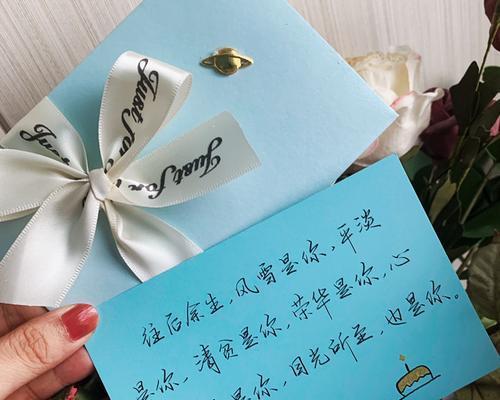 Just for
Just for
Just
往后余生，风雪是你，平淡
是你，清贫是你，荣华是你，心
是你，目光所至，也是你。